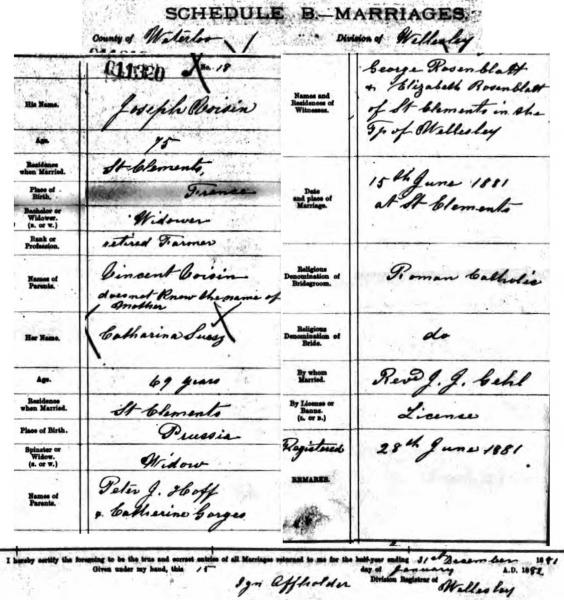 SCHEDULE B.—MARRIAGES.
County of Waterloo
Division of Wellesley
011320
No. 18
His Name.
Joseph Voisin
Age.
75
Residence when Married.
St Clements,
Place of Birth.
France
Bachelor or Widower. (B. or W.)
Widower
Rank or Profession.
retired Farmer
Names of Parents.
Vincent Voisin
does not Know the name of
Mother
Her Name.
Catharina
Age.
69 years
Residence when Married.
St Clements
Place of Birth.
Prussia
Spinster or Widow. (S. or W.)
Widow
Names of Parents.
Peter J. Hoff
& Catherine Gorges
Names and Residences of Witnesses.
George Rosenblatt
& Elizabeth Rosenblatt
of St Clements in the
Tp of Wellesley
Date and place of Marriage.
15th June 1881
at St Clements
Religious Denomination of Bridegroom.
Roman Catholic
Religious Denomination of Bride.
do
By whom Married.
Revd J. J. Gehl
By License or Banns. (L. or B.)
License
Registered
28th June 1881
REMARKS.
I hereby certify the foregoing to be the true and correct entries of all Marriages returned to me for the half-year ending 31st December 1881
Given under my hand, this 15 day of January A.D. 1882
Ign Affholder Division Registrar of Wellesley